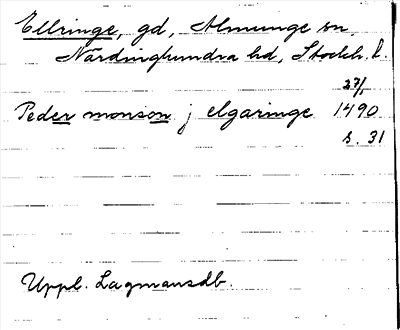 Ellringe, gd, Almunge sn,
Närdinghundra hd, Stockh. l.
27/1
Peder monson j elgaringe 1490
s. 31
Uppl. Lagmansdb.